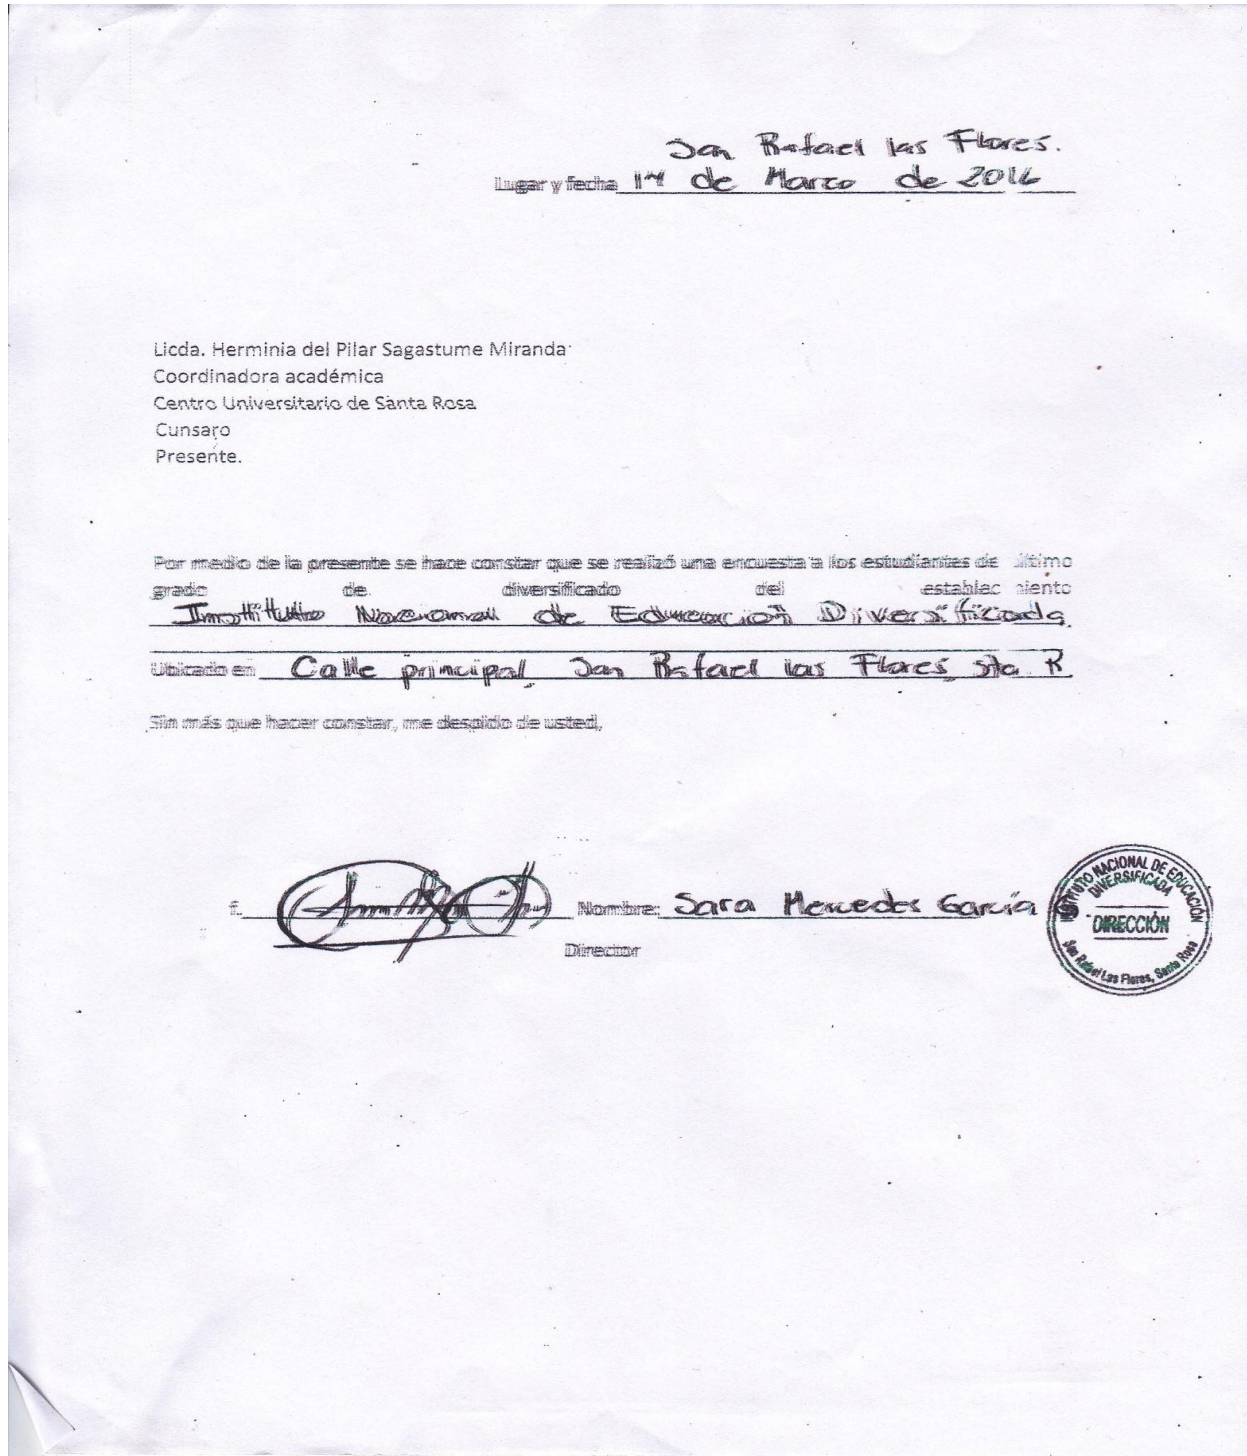 San Rafael las Flores.
Lugar y fecha 14 de Marzo de 2016
Licda. Herminia del Pilar Sagastume Miranda
Coordinadora académica
Centro Universitario de Santa Rosa
Cunsaro
Presente.
Por medio de la presente se hace constar que se realizó una encuesta a los estudiantes de último
grado de diversificado del establecimiento
Instituto Nacional de Educación Diversificada
Ubicado en Calle principal San Rafael las Flores Sta. R
Sin más que hacer constar, me despido de usted,
f. Nombre: Sara Mercedes García
Director
INSTITUTO NACIONAL DE EDUCACIÓN
DIVERSIFICADA
DIRECCIÓN
San Rafael Las Flores, Santa Rosa